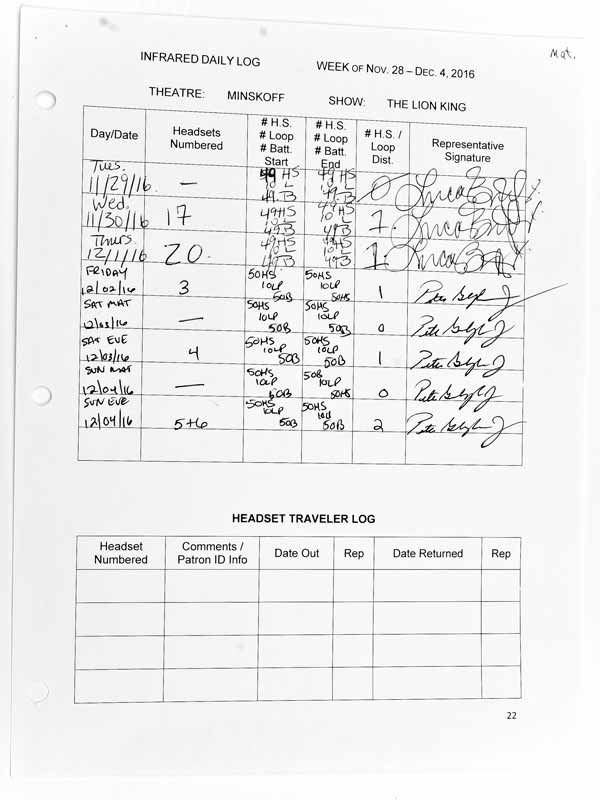 Mat.
INFRARED DAILY LOG WEEK OF NOV. 28 – DEC. 4, 2016
THEATRE: MINSKOFF SHOW: THE LION KING
Day/Date Headsets Numbered # H.S. # Loop # Batt. Start # H.S. # Loop # Batt. End # H.S. / Loop Dist. Representative Signature
Tues. 11/29/16 — 49 HS 10 L 49 B 49 HS 10 L 49 B 0
Wed. 11/30/16 17 49HS 10 L 49B 49HS 10 L 49B 1
Thurs. 12/1/16 20 49HS 10 L 49B 49HS 10 L 49B 1
FRIDAY 12/02/16 3 50HS 10LP 50B 50HS 10LP 50HS 1
SAT MAT 12/03/16 — 50HS 10LP 50B 50HS 10LP 50B 0
SAT EVE 12/03/16 4 50HS 10LP 50B 50HS 10LP 50B 1
SUN MAT 12/04/16 — 50HS 10LP 50B 50B 10LP 50HS 0
SUN EVE 12/04/16 5+6 50HS 10LP 50B 50HS 50B 2
HEADSET TRAVELER LOG
Headset Numbered Comments / Patron ID Info Date Out Rep Date Returned Rep
22